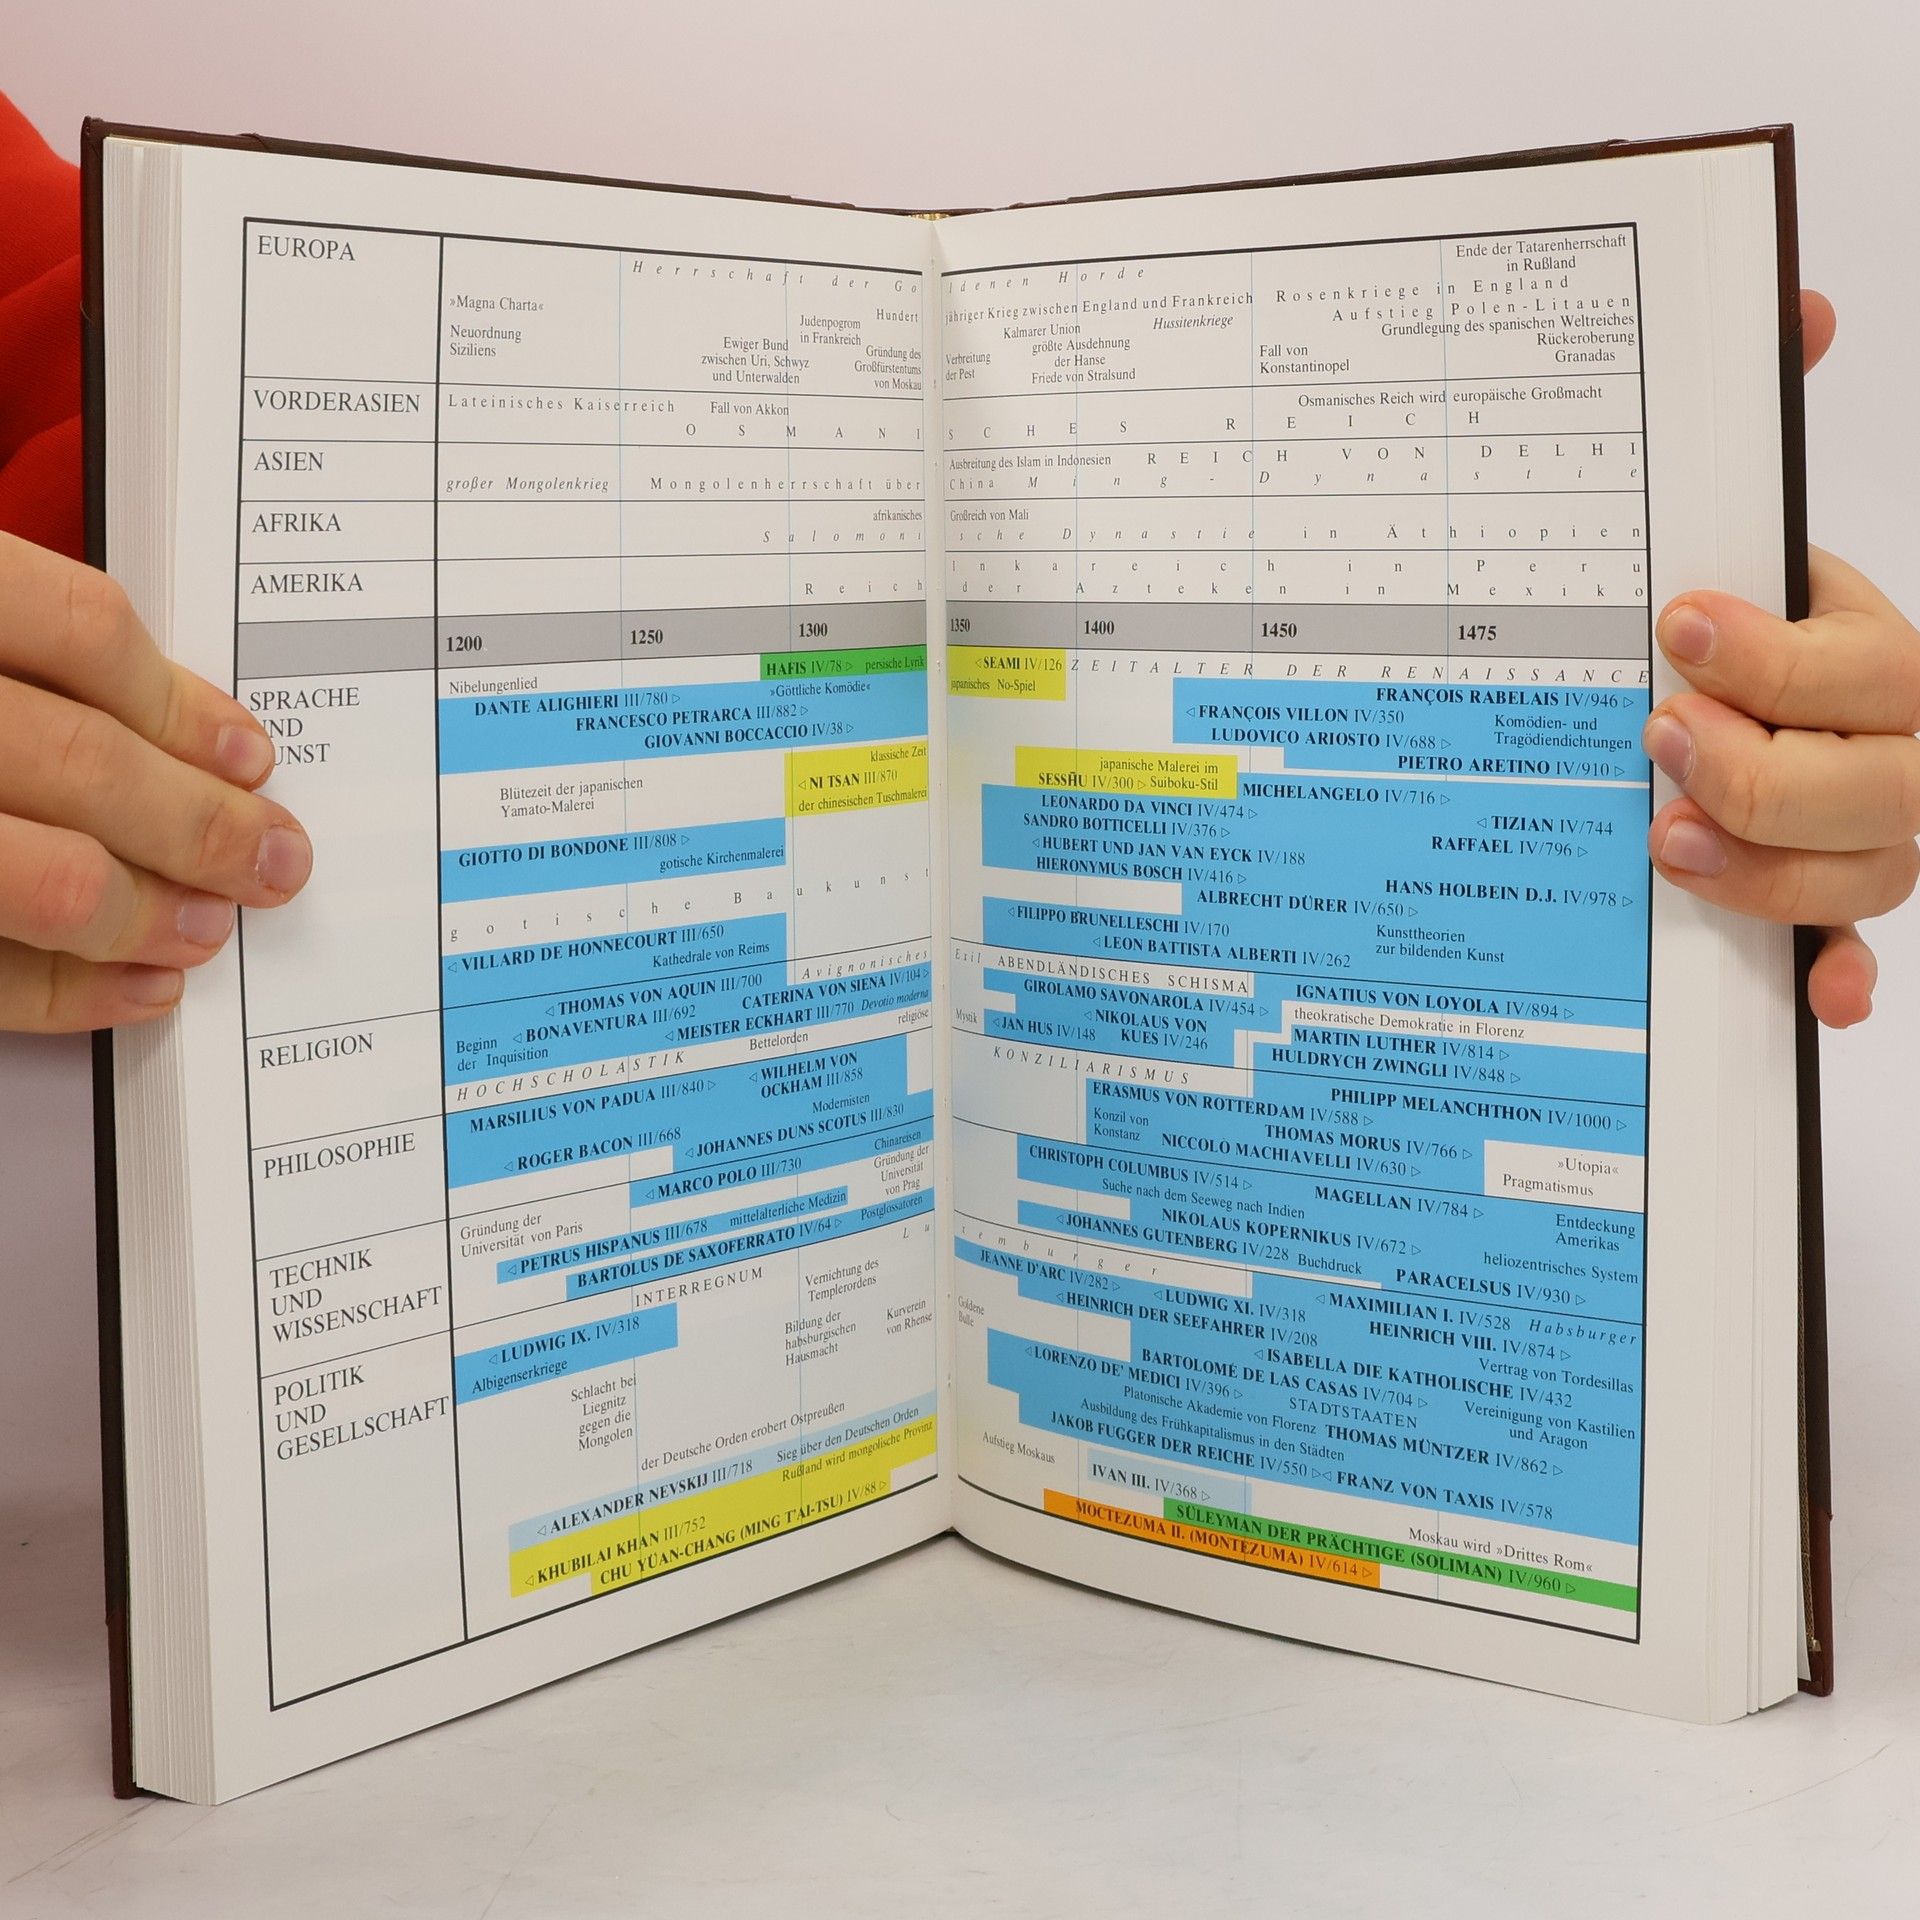 EUROPA
Herrschaft der Go
»Magna Charta«
Neuordnung
Siziliens
Ewiger Bund
zwischen Uri, Schwyz
und Unterwalden
Judenpogrom
in Frankreich
Hundert
Gründung des
Großfürstentums
von Moskau
VORDERASIEN
Lateinisches Kaiserreich
Fall von Akkon
OSMANI
ASIEN
großer Mongolenkrieg
Mongolenherrschaft über
AFRIKA
afrikanisches
Salomoni
AMERIKA
Reich
1200
1250
1300
SPRACHE
ND
UNST
HAFIS IV/78 ▷ persische Lyrik
Nibelungenlied
»Göttliche Komödie«
DANTE ALIGHIERI III/780 ▷
FRANCESCO PETRARCA III/882 ▷
GIOVANNI BOCCACCIO IV/38 ▷
klassische Zeit
◁ NI TSAN III/870
der chinesischen Tuschmalerei
Blütezeit der japanischen
Yamato-Malerei
GIOTTO DI BONDONE III/808 ▷
gotische Kirchenmalerei
gotische Baukunst
◁ VILLARD DE HONNECOURT III/650
Kathedrale von Reims
RELIGION
Avignonisches
◁ THOMAS VON AQUIN III/700
CATERINA VON SIENA IV/104 ▷
◁ BONAVENTURA III/692
◁ MEISTER ECKHART III/770 Devotio moderna
Beginn
der Inquisition
Bettelorden
religiöse
PHILOSOPHIE
HOCHSCHOLASTIK
MARSILIUS VON PADUA III/840 ▷
◁ WILHELM VON
OCKHAM III/858
Modernisten
◁ ROGER BACON III/668
◁ JOHANNES DUNS SCOTUS III/830
TECHNIK
UND
WISSENSCHAFT
Chinareisen
◁ MARCO POLO III/730
Gründung der
Universität
von Prag
Gründung der
Universität von Paris
◁ PETRUS HISPANUS III/678 mittelalterliche Medizin
BARTOLUS DE SAXOFERRATO IV/64 ▷ Postglossatoren
POLITIK
UND
GESELLSCHAFT
INTERREGNUM
Lu
◁ LUDWIG IX. IV/318
Albigenserkriege
Vernichtung des
Templerordens
Bildung der
habsburgischen
Hausmacht
Kurverein
von Rhense
Schlacht bei
Liegnitz
gegen die
Mongolen
der Deutsche Orden erobert Ostpreußen
◁ ALEXANDER NEVSKIJ III/718 Sieg über den Deutschen Orden
Rußland wird mongolische Provinz
◁ KHUBILAI KHAN III/752
CHU YÜAN-CHANG (MING T'AI-TSU) IV/88 ▷
ldenen Horde
jähriger Krieg zwischen England und Frankreich
Kalmarer Union
größte Ausdehnung
der Hanse
Friede von Stralsund
Verbreitung
der Pest
Hussitenkriege
Ende der Tatarenherrschaft
in Rußland
Rosenkriege in England
Aufstieg Polen-Litauen
Grundlegung des spanischen Weltreiches
Rückeroberung
Granadas
Fall von
Konstantinopel
Osmanisches Reich wird europäische Großmacht
SCHES REICH
Ausbreitung des Islam in Indonesien
REICH VON DELHI
China Ming-Dynastie
Großreich von Mali
sche Dynastie in Äthiopien
Inkareich in Peru
der Azteken in Mexiko
1350
1400
1450
1475
◁ SEAMI IV/126
japanisches No-Spiel
ZEITALTER DER RENAISSANCE
FRANÇOIS RABELAIS IV/946 ▷
◁ FRANÇOIS VILLON IV/350
Komödien- und
Tragödiendichtungen
LUDOVICO ARIOSTO IV/688 ▷
PIETRO ARETINO IV/910 ▷
japanische Malerei im
SESSHŪ IV/300 ▷ Suiboku-Stil
MICHELANGELO IV/716 ▷
LEONARDO DA VINCI IV/474 ▷
◁ TIZIAN IV/744
SANDRO BOTTICELLI IV/376 ▷
RAFFAEL IV/796 ▷
◁ HUBERT UND JAN VAN EYCK IV/188
HIERONYMUS BOSCH IV/416 ▷
HANS HOLBEIN D.J. IV/978 ▷
ALBRECHT DÜRER IV/650 ▷
◁ FILIPPO BRUNELLESCHI IV/170
Kunsttheorien
zur bildenden Kunst
◁ LEON BATTISTA ALBERTI IV/262
Exil ABENDLÄNDISCHES SCHISMA
GIROLAMO SAVONAROLA IV/454 ▷
IGNATIUS VON LOYOLA IV/894 ▷
theokratische Demokratie in Florenz
Mystik
◁ JAN HUS IV/148
◁ NIKOLAUS VON
KUES IV/246
MARTIN LUTHER IV/814 ▷
HULDRYCH ZWINGLI IV/848 ▷
KONZILIARISMUS
PHILIPP MELANCHTHON IV/1000 ▷
ERASMUS VON ROTTERDAM IV/588 ▷
Konzil von
Konstanz
THOMAS MORUS IV/766 ▷
NICCOLÒ MACHIAVELLI IV/630 ▷
»Utopia«
Pragmatismus
CHRISTOPH COLUMBUS IV/514 ▷
Suche nach dem Seeweg nach Indien
MAGELLAN IV/784 ▷
Entdeckung
Amerikas
NIKOLAUS KOPERNIKUS IV/672 ▷
heliozentrisches System
◁ JOHANNES GUTENBERG IV/228 Buchdruck
PARACELSUS IV/930 ▷
xemburger
JEANNE D'ARC IV/282 ▷
◁ LUDWIG XI. IV/318
◁ MAXIMILIAN I. IV/528 Habsburger
Goldene
Bulle
◁ HEINRICH DER SEEFAHRER IV/208
HEINRICH VIII. IV/874 ▷
◁ ISABELLA DIE KATHOLISCHE IV/432
Vertrag von Tordesillas
◁ LORENZO DE' MEDICI IV/396 ▷
BARTOLOMÉ DE LAS CASAS IV/704 ▷
Platonische Akademie von Florenz
STADTSTAATEN
Vereinigung von Kastilien
und Aragon
Ausbildung des Frühkapitalismus in den Städten
THOMAS MÜNTZER IV/862 ▷
JAKOB FUGGER DER REICHE IV/550 ▷
◁ FRANZ VON TAXIS IV/578
Aufstieg Moskaus
IVAN III. IV/368 ▷
Moskau wird »Drittes Rom«
SÜLEYMAN DER PRÄCHTIGE (SOLIMAN) IV/960 ▷
MOCTEZUMA II. (MONTEZUMA) IV/614 ▷